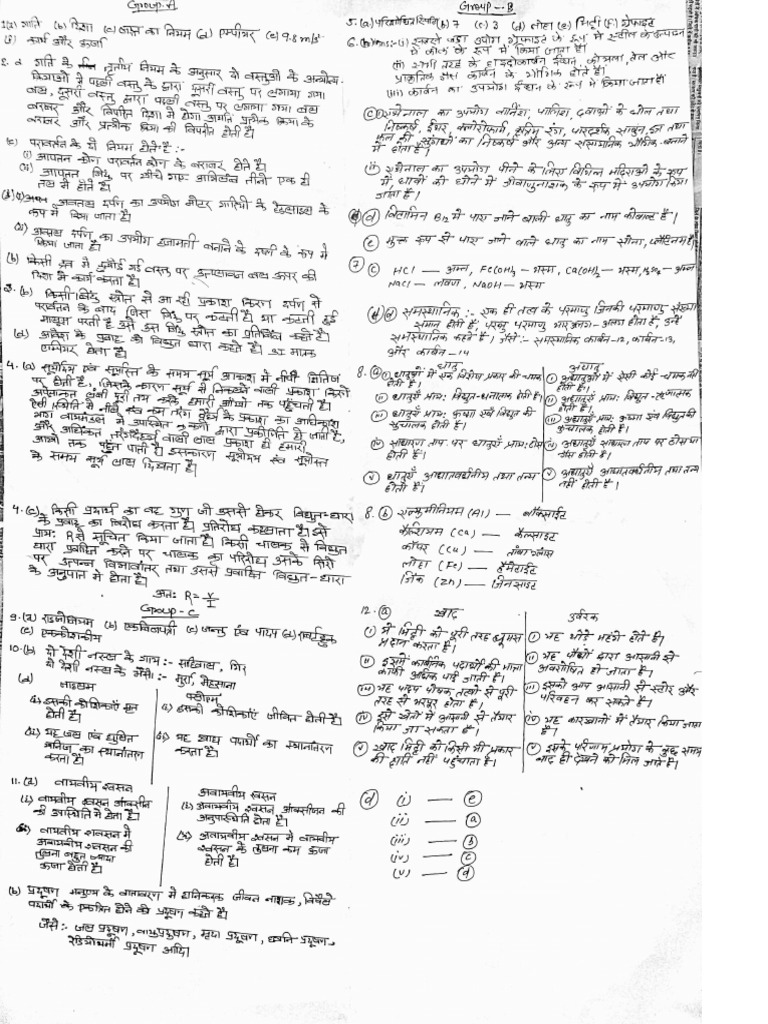 Group-A
1.(a) गति (b) दिशा (c) जड़त्व का नियम (d) एम्पीयर (e) 9.8 m/s²
(f) कार्य और ऊर्जा
2. a गति के तृतीय नियम के अनुसार दो वस्तुओं के अन्योन्य
क्रियाओं में पहली वस्तु के द्वारा दूसरी वस्तु पर लगाया गया
बल, दूसरी वस्तु द्वारा पहली वस्तु पर लगाया गया बल
बराबर और विपरीत दिशा में होगा अर्थात् प्रत्येक क्रिया के
बराबर और प्रत्येक क्रिया की विपरीत होती है।
(c) परावर्तन के दो नियम होते हैं :-
(i) आपतन कोण परावर्तन कोण के बराबर होते है।
(ii) आपतन बिंदु पर खींचे गए अभिलंब तीनों एक ही
तल में होते है।
(d)(i) अवतल दर्पण का उपयोग मोटर गाड़ियों के हेडलाइट के
रूप में किया जाता है।
(ii) अवतल दर्पण का उपयोग हजामती बनाने के दर्पण के रूप में
किया जाता है।
(b) किसी द्रव में डुबोई गई वस्तु पर उत्प्लावन बल ऊपर की
दिशा में कार्य करता है।
3.(b) किसी बिंदु स्रोत से आ रही प्रकाश किरण दर्पण में
परावर्तन के बाद जिस बिंदु पर कटती है। या कटती हुई
मालूम पड़ती है उसे उस बिंदु स्रोत का प्रतिबिंब कहते है।
(d) आवेश के प्रवाह को विद्युत धारा कहते है। मात्रक
एम्पियर होता है।
4.(a) सूर्योदय एवं सूर्यास्त के समय सूर्य आकाश में नीची क्षितिज
पर होती है, जिसके कारण सूर्य से निकलने वाली प्रकाश किसी
अपेक्षाकृत लंबी दूरी तय करके हमारी आँखों तक पहुँचती है।
ऐसी स्थिति में नीली एवं कम तरंग दैर्ध्य के प्रकाश का अधिकांश
भाग वायुमंडल में उपस्थित कणों द्वारा प्रकीर्णित हो जाती है,
और अधिकतर तरंगदैर्ध्य वाली लाल प्रकाश ही हमारी
आँखों तक पहुँच पाती है। इसकारण सूर्योदय एवं सूर्यास्त
के समय सूर्य लाल दिखता है।
4.(c) किसी पदार्थ का वह गुण जो उससे होकर विद्युत-धारा
के प्रवाह का विरोध करता है। प्रतिरोध कहलाता है। इसे
प्रायः R से सूचित किया जाता है। किसी चालक से विद्युत
धारा प्रवाहित करने पर चालक का परिरोध उसके सिरों
पर उत्पन्न विभवांतर तथा उससे प्रवाहित विद्युत-धारा
के अनुपात में होता है।
अतः R = V/I
Group-C
9.(a) राइजोबियम (b) एकबिजपत्री (c) जन्तु एंव पादप (d)
(e) एककोशकीय
10.(b) दो देशी नस्ल के गाय :- सहिवाल, गिर
दो देशी नस्ल के भैंस :- मुर्रा, मेहसाना
(d) जाइलम
(i) इसकी कोशिकाएँ मृत
होती है।
(ii) यह जल एवं घुलित
खनिज का स्थानांतरण
करता है।
फ्लोएम
(i) इसकी कोशिकाएँ जीवित होती है।
(ii) यह खाद्य पदार्थों का स्थानांतरण
करता है।
11.(a) वायवीय श्वसन
(i) वायवीय श्वसन ऑक्सीजन
की उपस्थिति में होता है।
(ii) वायवीय श्वसन में
अवायवीय श्वसन की
तुलना बहुत ज्यादा
ऊर्जा होती है।
अवायवीय श्वसन
(i) अवायवीय श्वसन ऑक्सीजन की
अनुपस्थिति होता है।
(ii) अवायवीय श्वसन में वायवीय
श्वसन के तुलना कम ऊर्जा
होती है।
(b) प्रदूषण मनुष्य के वातावरण में हानिकारक जीवन नाशक, विषैले
पदार्थों के एकत्रित होने को प्रदूषण कहते है।
जैसे :- जल प्रदूषण, वायुप्रदूषण, मृदा प्रदूषण, ध्वनि प्रदूषण,
रेडियोधर्मी प्रदूषण आदि।
Group-B
5.(a) (b) 7 (c) 3 (d) लोहा (e) मिट्टी (f) ग्रेफाइट
6.(b) (i) सबसे बड़ा उपयोग ग्रेफाइट के रूप में स्टील के उत्पादन
में कोक के रूप में किया जाता है।
(ii) सभी तरह के हाइड्रोकार्बन ईंधन, कोयला, तेल और
प्राकृतिक गैस कार्बन के यौगिक होते है।
(iii) कार्बन का उपयोग ईंधन के रूप में किया जाता है।
(c) एथेनॉल का उपयोग वार्निश, पॉलिश, दवाओं के घोल तथा
निष्कर्ष, ईथर, क्लोरोफार्म, कृत्रिम रंग, पारदर्शक साबुन, इत्र तथा
फल की सुगंधों का निष्कर्ष और अन्य रासायनिक यौगिक बनाने
में होता है।
(ii) एथेनॉल का उपयोग पीने के लिए विभिन्न मदिराओं के रूप
में, घावों को धोने में जीवाणुनाशक के रूप में उपयोग किया
जाता है।
(d) विटामिन B12 में पाया जाने वाली धातु का नाम कोबाल्ट है।
(e) मुक्त रूप से पाये जाने वाले धातु का नाम सोना, प्लैटिनम है।
7 (c) HCl — अम्ल, Fe(OH)₂ — भस्म, Ca(OH)₂ — भस्म, H₂SO₄ — अम्ल
NaCl — लवण, NaOH — भस्म
(d) समस्थानिक :- एक ही तत्व के परमाणु जिनकी परमाणु संख्या
समान होती है, परन्तु परमाणु भार अलग-अलग होता है, उन्हें
समस्थानिक कहते है। जैसे :- समस्थानिक कार्बन-12, कार्बन-13,
और कार्बन-14
8. (a) धातु
(i) धातुओं में एक विशेष प्रकार की चमक
होती है।
(ii) धातुएँ प्रायः विद्युत-धनात्मक होती है।
(iii) धातुएँ प्रायः ऊष्मा एवं विद्युत की
सुचालक होती है।
(iv) साधारण ताप पर धातुएँ प्रायः ठोस
होती है।
(v) धातुएँ आघातवर्धनीय तथा तन्य
होती है।
अधातु
(i) अधातुओं में ऐसी कोई चमक नहीं
होती है।
(ii) अधातुएँ प्रायः विद्युत-ऋणात्मक
होती है।
(iii) अधातुएँ प्रायः ऊष्मा एवं विद्युत की
कुचालक होती है।
(iv) अधातुएँ साधारण ताप पर ठोस या
होती है।
(v) अधातुएँ आघातवर्धनीय तथा तन्य
नहीं होती है।
8. (b) एल्युमीनियम (Al) — बॉक्साइट
कैल्शियम (Ca) — कैल्साइट
कॉपर (Cu) —
लोहा (Fe) — हेमेटाइट
जिंक (Zn) — जिनसाइट
12. (a) खाद
(i) ये मिट्टी को पूरी तरह ह्यूमस
प्रदान करता है।
(ii) इसमें कार्बनिक पदार्थों की मात्रा
काफी अधिक पाई जाती है।
(iii) यह पादप पोषक तत्वों से पूरी
तरह से भरपूर होता है।
(iv) इसे खेतों में आसानी से तैयार
किया जा सकता है।
(v) खाद मिट्टी को किसी भी प्रकार
की हानि नहीं पहुँचाता है।
उर्वरक
(i) यह थोड़े महंगे होते है।
(ii) यह पौधों द्वारा आसानी से
अवशोषित हो जाता है।
(iii) इसको आप आसानी से स्टोर और
परिवहन कर सकते है।
(iv) यह कारखानों में तैयार किया जाता
है।
(v) इसके परिणाम प्रयोग के कुछ समय
बाद ही देखने को मिल जाते है।
(d) (i) — (e)
(ii) — (a)
(iii) — (b)
(iv) — (c)
(v) — (d)